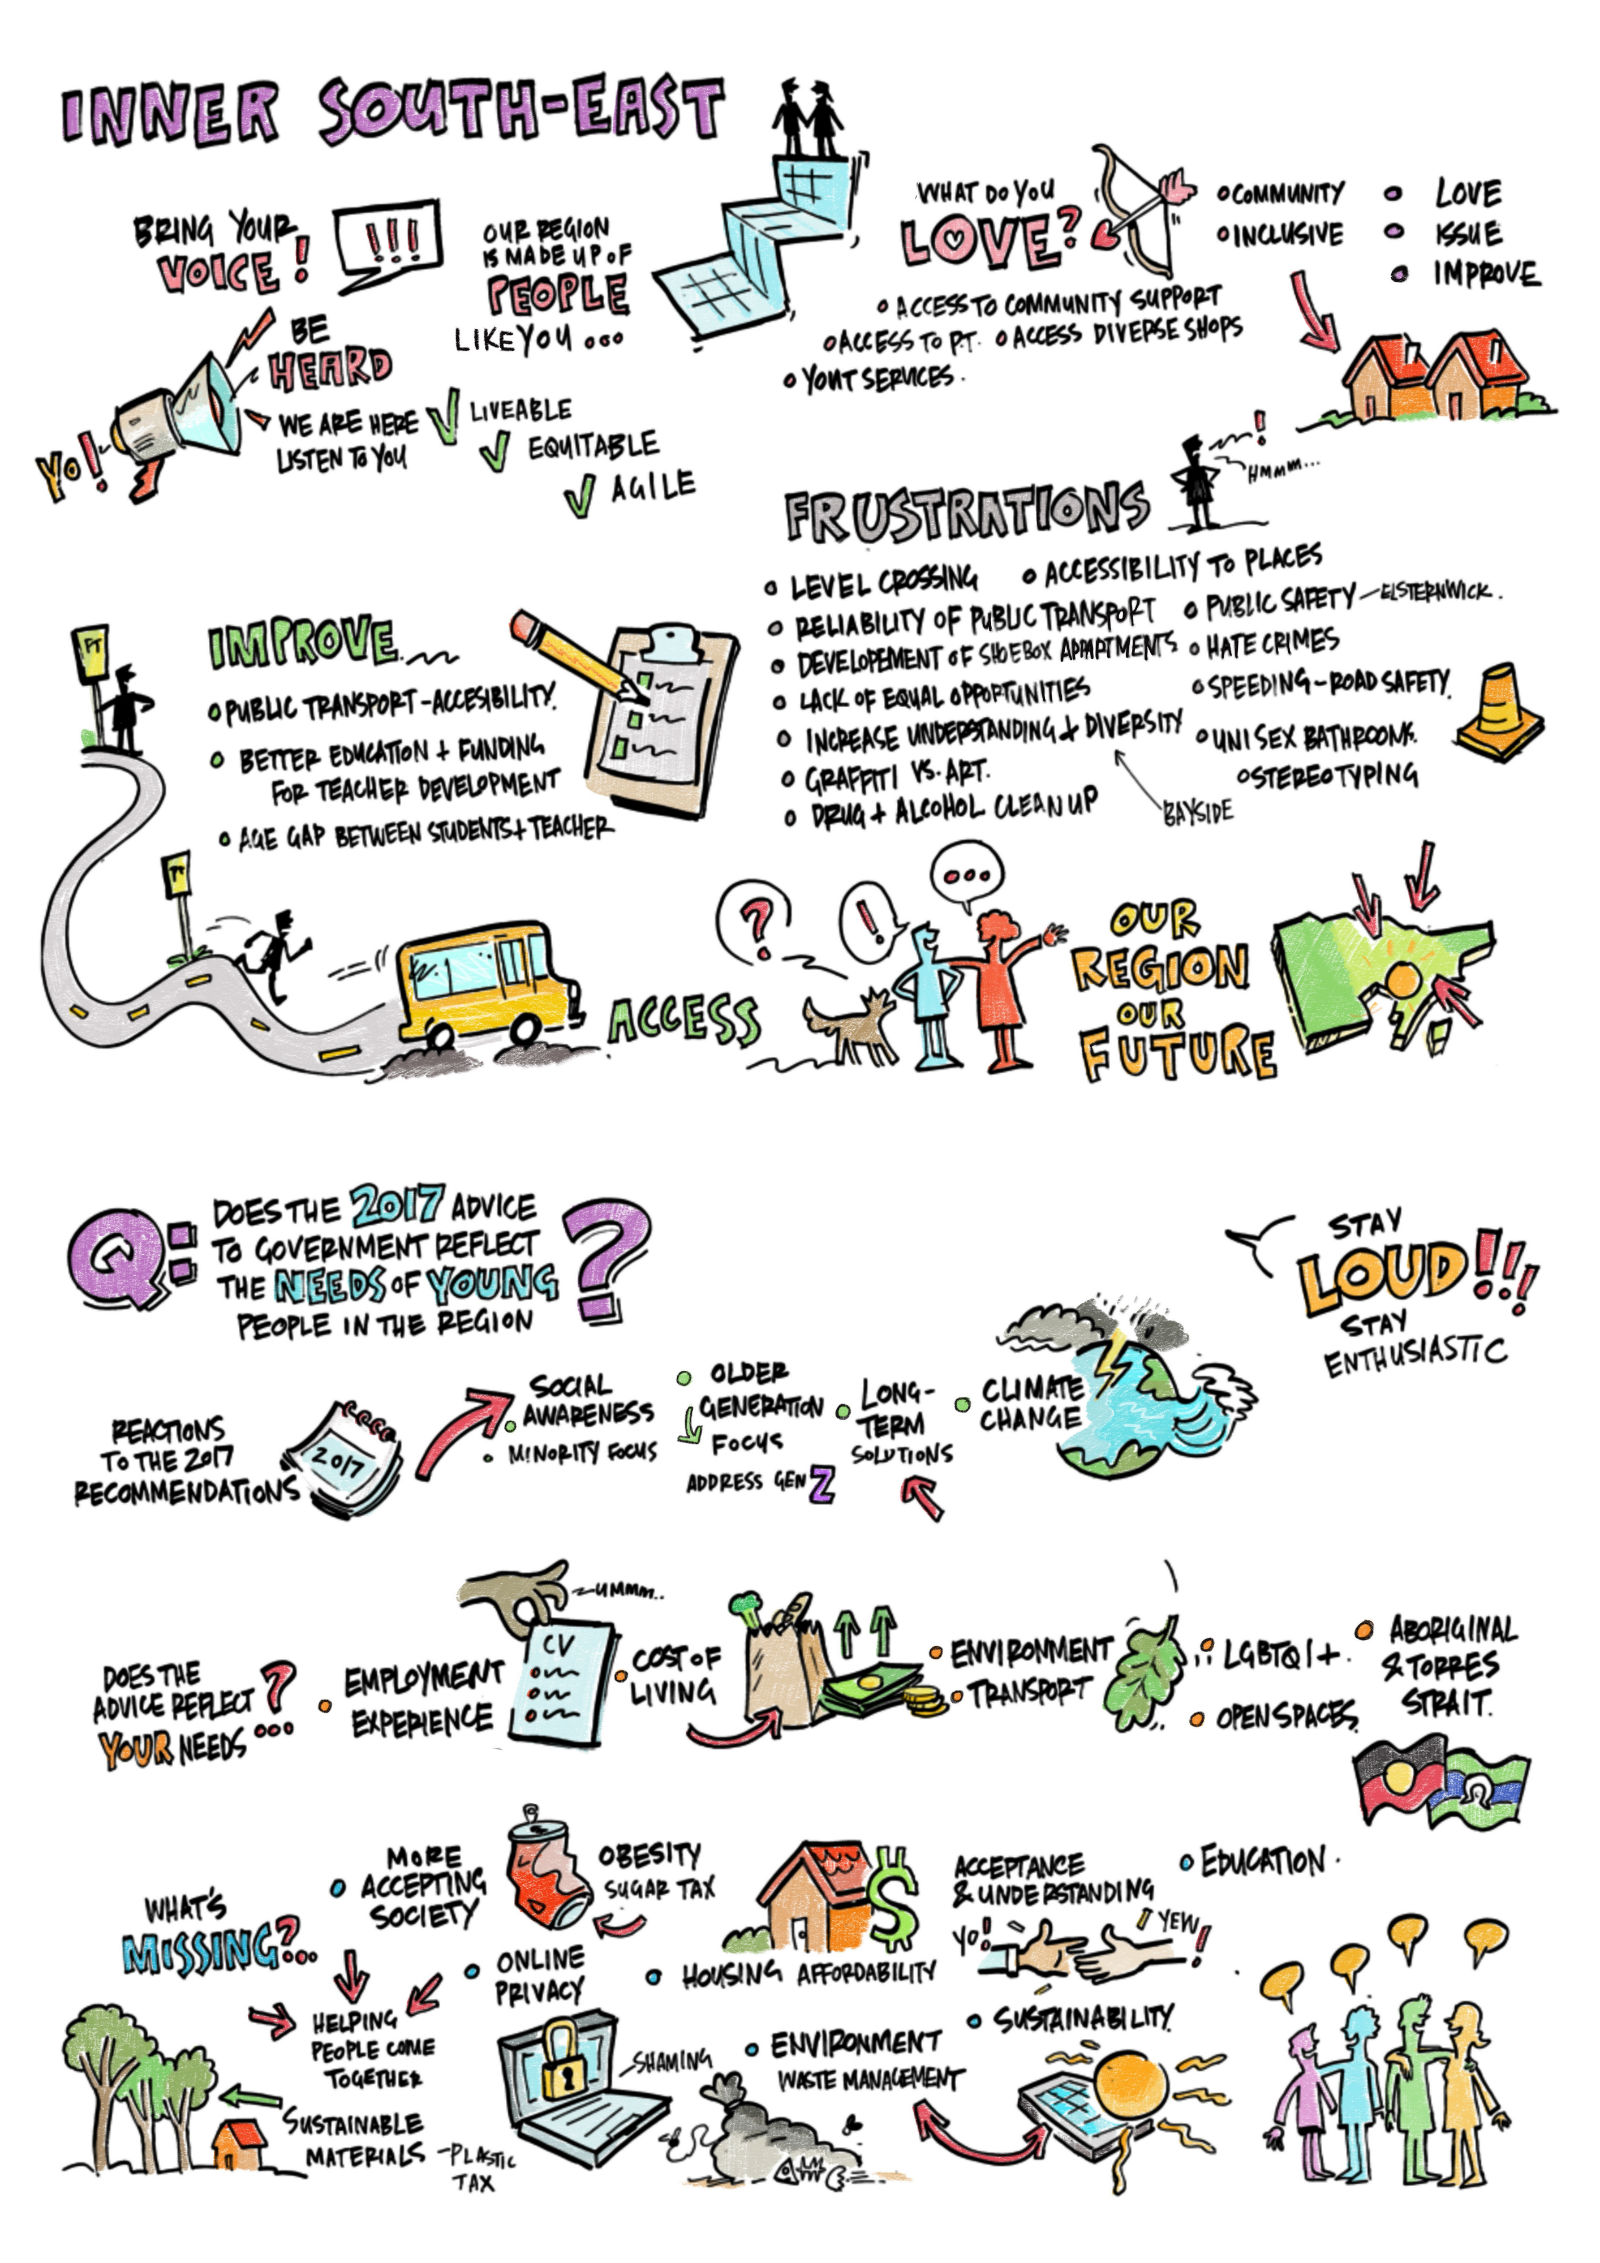 INNER SOUTH-EAST
BRING YOUR
VOICE!
!!!
OUR REGION
IS MADE UP OF
PEOPLE
LIKE YOU ...
BE
HEARD
YO!
WE ARE HERE
LISTEN TO YOU
LIVEABLE
EQUITABLE
AGILE
WHAT DO YOU
LOVE?
COMMUNITY
INCLUSIVE
LOVE
ISSUE
IMPROVE
ACCESS TO COMMUNITY SUPPORT
ACCESS TO P.T.
ACCESS DIVERSE SHOPS
YOUT SERVICES.
!
HMMM...
FRUSTRATIONS
LEVEL CROSSING
ACCESSIBILITY TO PLACES
RELIABILITY OF PUBLIC TRANSPORT
PUBLIC SAFETY - ELSTERNWICK.
DEVELOPEMENT OF SHOEBOX APPARTMENTS
HATE CRIMES
LACK OF EQUAL OPPORTUNITIES
SPEEDING - ROAD SAFETY.
INCREASE UNDERSTANDING + DIVERSITY
UNI SEX BATHROOMS.
GRAFFITI VS. ART.
STEREOTYPING
DRUG + ALCOHOL CLEAN UP
BAYSIDE
PT
IMPROVE
PUBLIC TRANSPORT - ACCESIBILITY.
BETTER EDUCATION + FUNDING
FOR TEACHER DEVELOPMENT
AGE GAP BETWEEN STUDENTS + TEACHER
PT
ACCESS
?
!
...
OUR
REGION
OUR
FUTURE
Q:
DOES THE 2017 ADVICE
TO GOVERNMENT REFLECT
THE NEEDS OF YOUNG
PEOPLE IN THE REGION
?
STAY
LOUD!!!
STAY
ENTHUSIASTIC
REACTIONS
TO THE 2017
RECOMMENDATIONS
2017
SOCIAL
AWARENESS
MINORITY FOCUS
OLDER
GENERATION
FOCUS
ADDRESS GEN Z
LONG-
TERM
SOLUTIONS
CLIMATE
CHANGE
DOES THE
ADVICE REFLECT
YOUR NEEDS ...
?
EMPLOYMENT
EXPERIENCE
UMMM..
CV
COST OF
LIVING
ENVIRONMENT
TRANSPORT
LGBTQI+.
OPEN SPACES.
ABORIGINAL
& TORRES
STRAIT.
WHAT'S
MISSING?...
MORE
ACCEPTING
SOCIETY
OBESITY
SUGAR TAX
$
ACCEPTANCE
& UNDERSTANDING
YO!
YEW!
EDUCATION.
HELPING
PEOPLE COME
TOGETHER
ONLINE
PRIVACY
HOUSING AFFORDABILITY
SHAMING
ENVIRONMENT
WASTE MANAGEMENT
SUSTAINABILITY.
SUSTAINABLE
MATERIALS
- PLASTIC
TAX